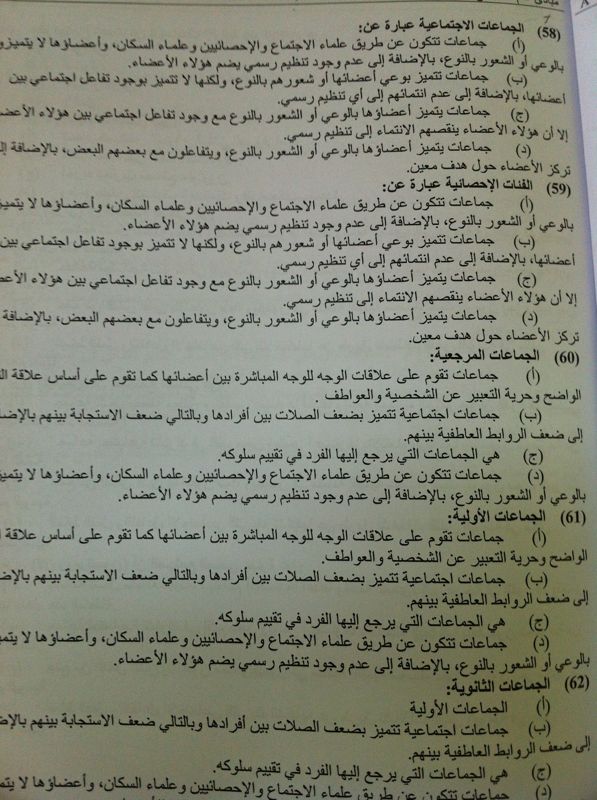 مبادئ
A
(58) الجماعات الاجتماعية عبارة عن:
(أ) جماعات تتكون عن طريق علماء الاجتماع والإحصائيين وعلماء السكان، وأعضاؤها لا يتميزو
بالوعي أو الشعور بالنوع، بالإضافة إلى عدم وجود تنظيم رسمي يضم هؤلاء الأعضاء.
(ب) جماعات تتميز بوعي أعضائها أو شعورهم بالنوع، ولكنها لا تتميز بوجود تفاعل اجتماعي بين
أعضائها، بالإضافة إلى عدم انتمائهم إلى أي تنظيم رسمي.
(ج) جماعات يتميز أعضاؤها بالوعي أو الشعور بالنوع مع وجود تفاعل اجتماعي بين هؤلاء الأعضا
إلا أن هؤلاء الأعضاء ينقصهم الانتماء إلى تنظيم رسمي.
(د) جماعات يتميز أعضاؤها بالوعي أو الشعور بالنوع، ويتفاعلون مع بعضهم البعض، بالإضافة إل
تركز الأعضاء حول هدف معين.
(59) الفئات الإحصائية عبارة عن:
(أ) جماعات تتكون عن طريق علماء الاجتماع والإحصائيين وعلماء السكان، وأعضاؤها لا يتميز
بالوعي أو الشعور بالنوع، بالإضافة إلى عدم وجود تنظيم رسمي يضم هؤلاء الأعضاء.
(ب) جماعات تتميز بوعي أعضائها أو شعورهم بالنوع، ولكنها لا تتميز بوجود تفاعل اجتماعي بين
أعضائها، بالإضافة إلى عدم انتمائهم إلى أي تنظيم رسمي.
(ج) جماعات يتميز أعضاؤها بالوعي أو الشعور بالنوع مع وجود تفاعل اجتماعي بين هؤلاء الأعض
إلا أن هؤلاء الأعضاء ينقصهم الانتماء إلى تنظيم رسمي.
(د) جماعات يتميز أعضاؤها بالوعي أو الشعور بالنوع، ويتفاعلون مع بعضهم البعض، بالإضافة
تركز الأعضاء حول هدف معين.
(60) الجماعات المرجعية:
(أ) جماعات تقوم على علاقات الوجه للوجه المباشرة بين أعضائها كما تقوم على أساس علاقة
الواضح وحرية التعبير عن الشخصية والعواطف .
(ب) جماعات اجتماعية تتميز بضعف الصلات بين أفرادها وبالتالي ضعف الاستجابة بينهم بالإضا
إلى ضعف الروابط العاطفية بينهم.
(ج) هي الجماعات التي يرجع إليها الفرد في تقييم سلوكه.
(د) جماعات تتكون عن طريق علماء الاجتماع والإحصائيين وعلماء السكان، وأعضاؤها لا يتميز
بالوعي أو الشعور بالنوع، بالإضافة إلى عدم وجود تنظيم رسمي يضم هؤلاء الأعضاء.
(61) الجماعات الأولية:
(أ) جماعات تقوم على علاقات الوجه للوجه المباشرة بين أعضائها كما تقوم على أساس علاقة
الواضح وحرية التعبير عن الشخصية والعواطف.
(ب) جماعات اجتماعية تتميز بضعف الصلات بين أفرادها وبالتالي ضعف الاستجابة بينهم بالإض
إلى ضعف الروابط العاطفية بينهم.
(ج) هي الجماعات التي يرجع إليها الفرد في تقييم سلوكه.
(د) جماعات تتكون عن طريق علماء الاجتماع والإحصائيين وعلماء السكان، وأعضاؤها لا يتمي
بالوعي أو الشعور بالنوع، بالإضافة إلى عدم وجود تنظيم رسمي يضم هؤلاء الأعضاء.
(62) الجماعات الثانوية:
(أ) الجماعات الأولية
(ب) جماعات اجتماعية تتميز بضعف الصلات بين أفرادها وبالتالي ضعف الاستجابة بينهم بالإض
إلى ضعف الروابط العاطفية بينهم.
(ج) هي الجماعات التي يرجع إليها الفرد في تقييم سلوكه.
(د) جماعات تتكون عن طريق علماء الاجتماع والإحصائيين وعلماء السكان، وأعضاؤها لا يتم